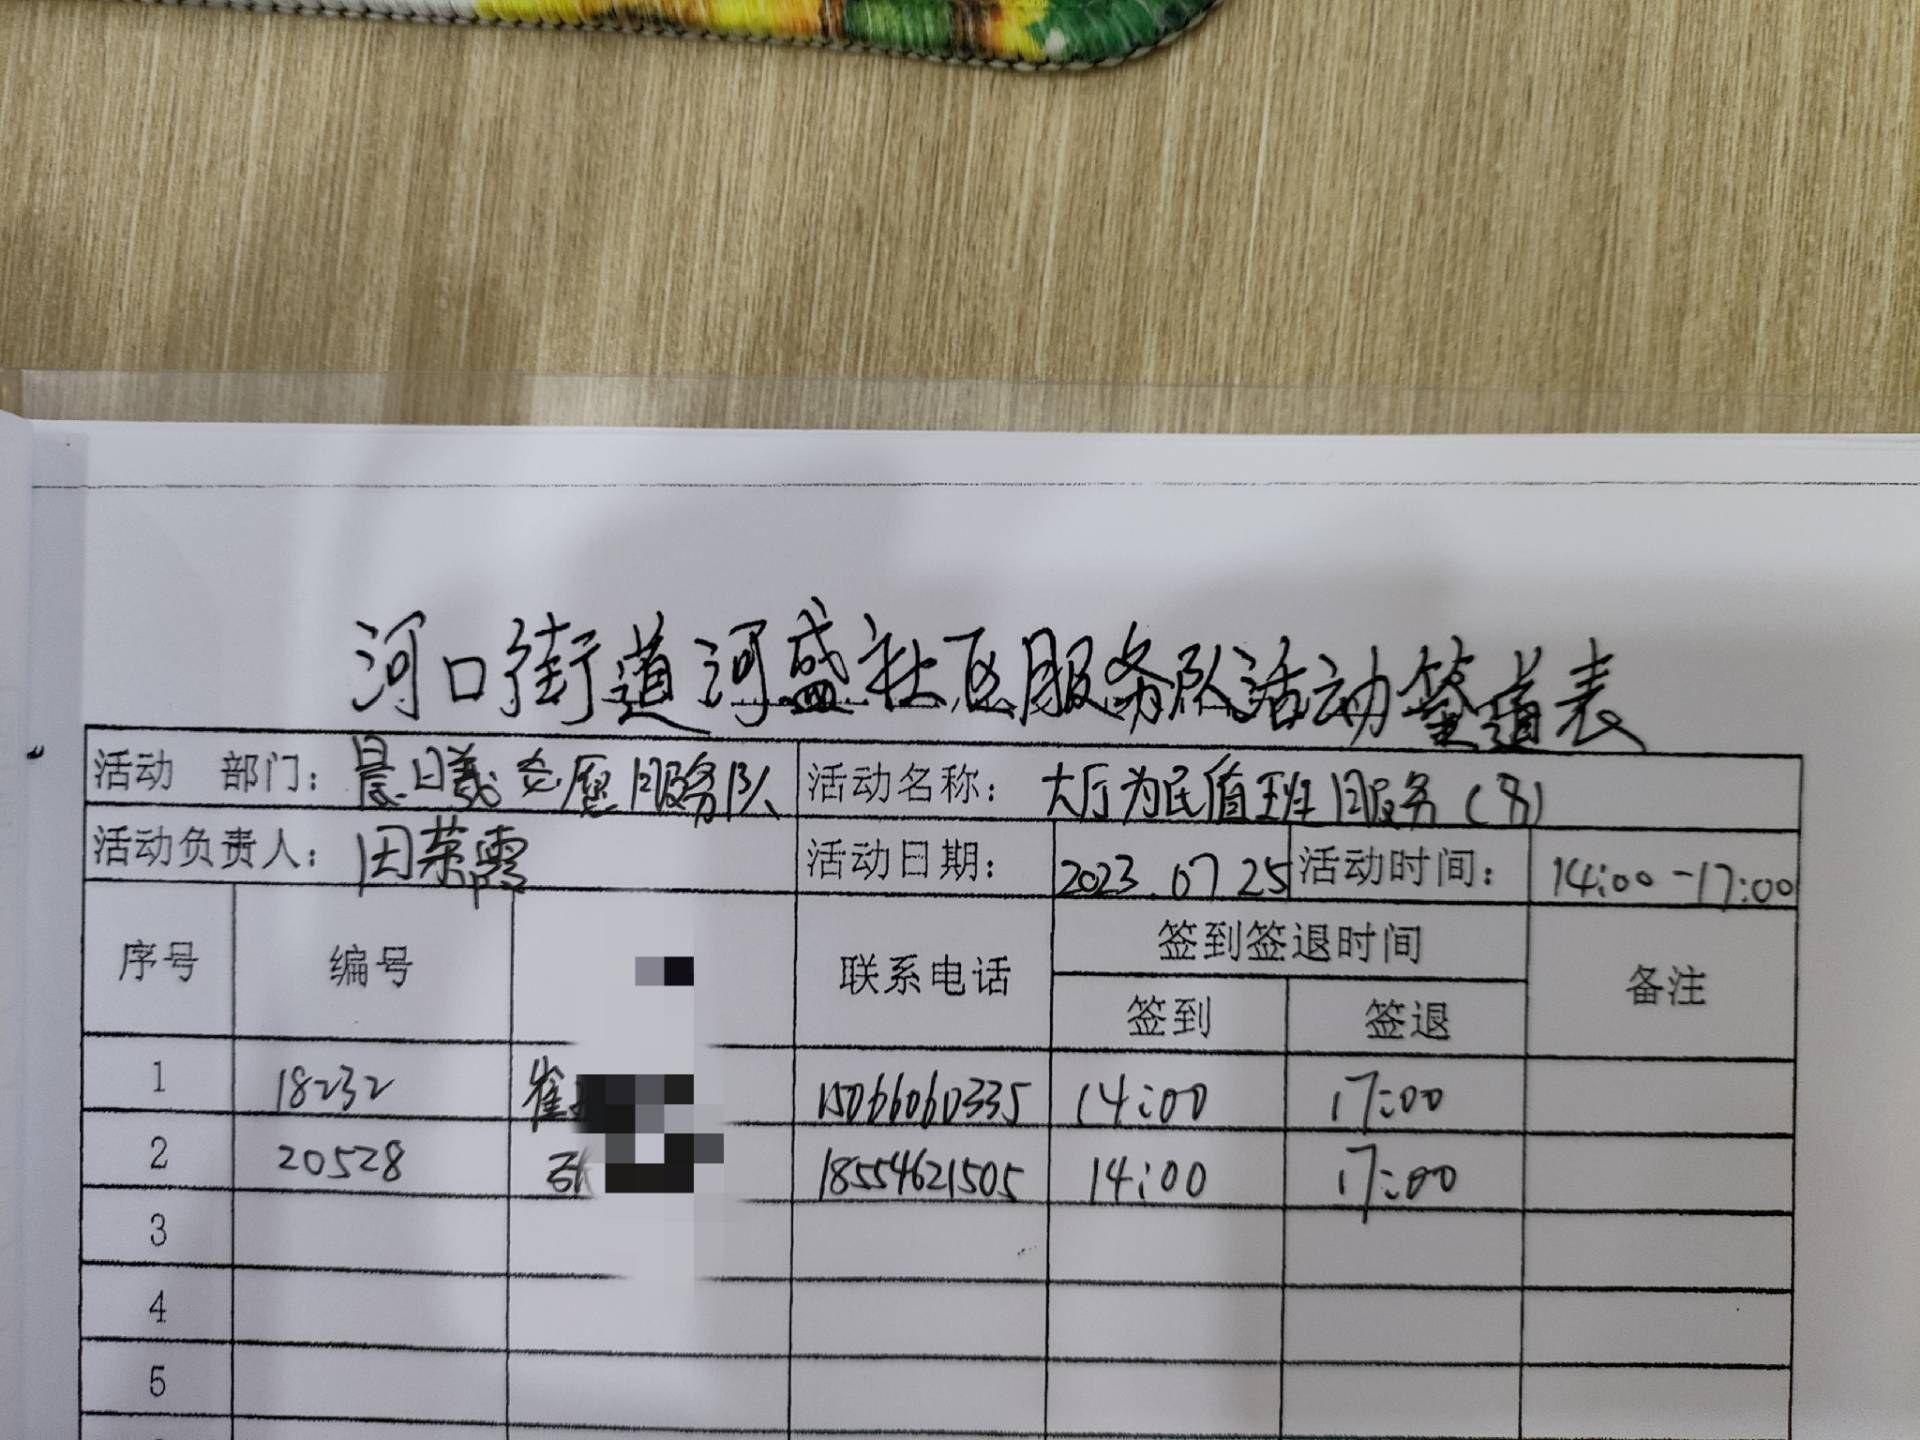 河口街道河盛社区服务队活动签道表
活动 部门：晨曦志愿服务队 活动名称：大厅为民值班服务（8）
活动负责人：田荣霞 活动日期：2023.07 25 活动时间：14:00-17:00
序号 编号 联系电话 签到签退时间 备注
签到 签退
1 18232 崔 15066060335 14:00 17:00
2 20528 张 18554621505 14:00 17:00
3
4
5